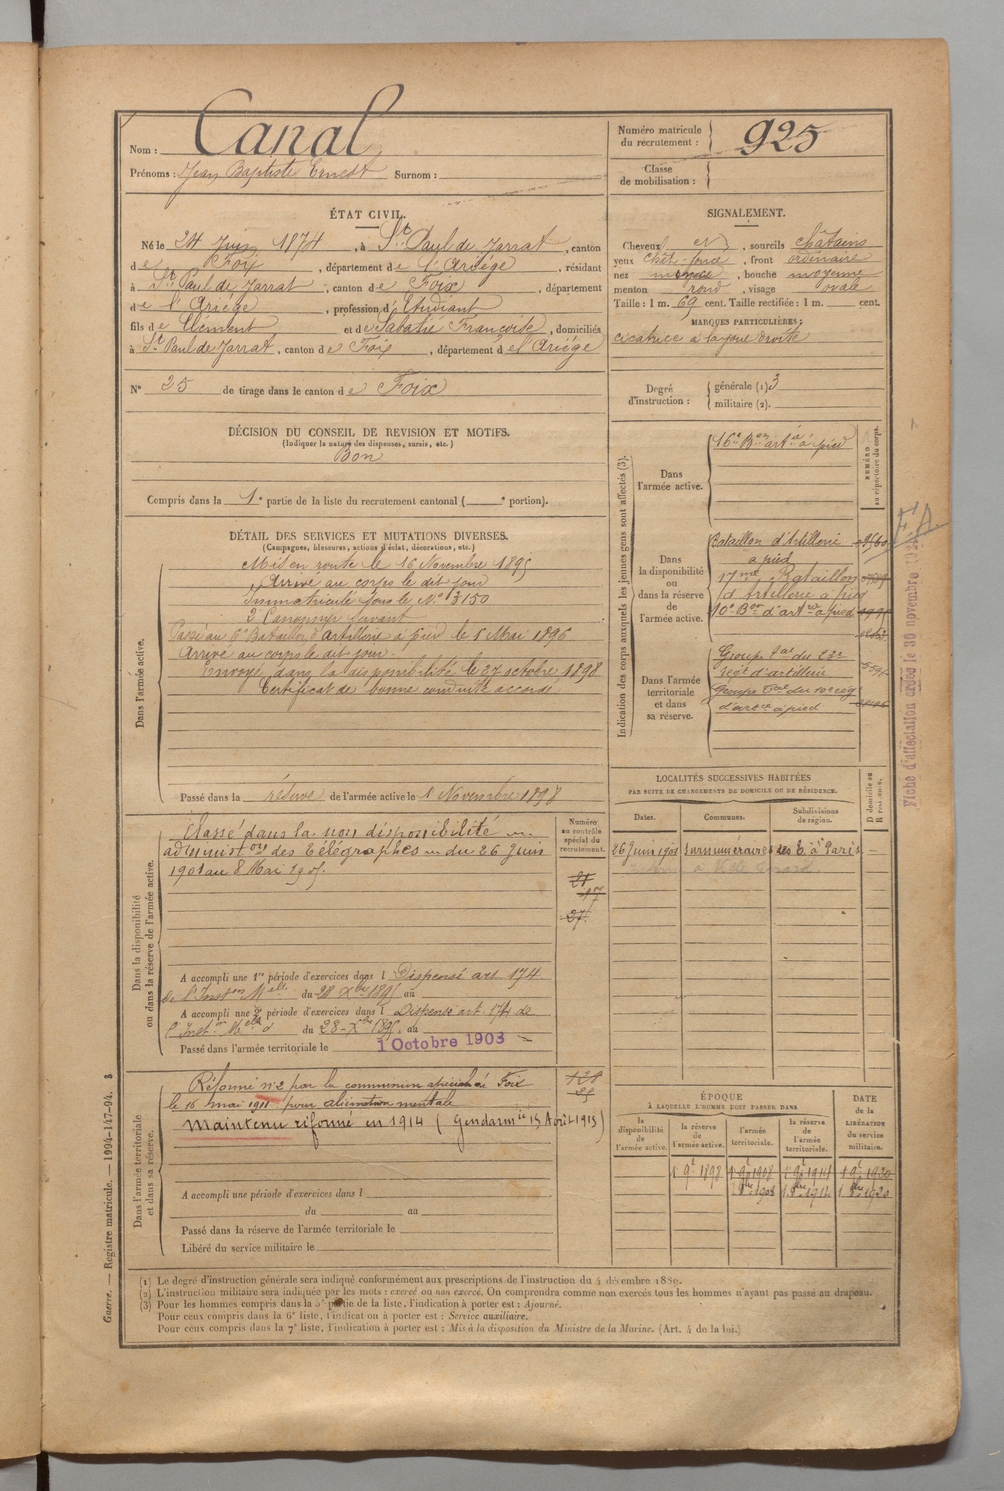 Nom : Canal
Prénoms : Jean Baptiste Ernest Surnom :
Numéro matricule du recrutement : 925
Classe de mobilisation :
ÉTAT CIVIL.
Né le 24 Juin 1874, à St Paul de Jarrat, canton
de Foix, département de l'Ariége, résidant
à St Paul de Jarrat, canton de Foix, département
de l'Ariége, profession d'Etudiant
fils de Clément et de Sabatié Françoise, domiciliés
à St Paul de Jarrat, canton de Foix, département de l'Ariége
N° 25 de tirage dans le canton de Foix
DÉCISION DU CONSEIL DE REVISION ET MOTIFS.
(Indiquer la nature des dispenses, sursis, etc.)
Bon
Compris dans la 1e partie de la liste du recrutement cantonal ( e portion).
SIGNALEMENT.
Cheveux et, sourcils châtains
yeux chât. foncé, front ordinaire
nez moyen, bouche moyenne
menton rond, visage ovale
Taille : 1 m. 69 cent. Taille rectifiée : 1 m. cent.
MARQUES PARTICULIÈRES :
cicatrice à la joue droite
Degré d'instruction : générale (1) 3
militaire (2).
DÉTAIL DES SERVICES ET MUTATIONS DIVERSES.
(Campagnes, blessures, actions d'éclat, décorations, etc.)
Dans l'armée active.
Mis en route le 16 Novembre 1895
Arrivé au corps le dit jour
Immatriculé sous le N° 3150
2e Canonnier servant
Passé au 6e Bataillon d'artillerie à pied le 5 Mai 1896
Arrivé au corps le dit jour.
Envoyé dans la disponibilité le 27 octobre 1898
Certificat de bonne conduite accordé
Passé dans la réserve de l'armée active le 1 Novembre 1898
Indication des corps auxquels les jeunes gens sont affectés (3).
NUMÉRO au répertoire du corps.
Dans l'armée active.
16e Bon artie à pied
Dans la disponibilité ou dans la réserve de l'armée active.
Bataillon d'Artillerie
à pied
17me Bataillon
d'Artillerie à pied
10e Bon d'artie à pied
Dans l'armée territoriale et dans sa réserve.
Groupe tal du 23e
régt d'artillerie
Groupe tal du 10e rég
d'artie à pied
Fiche d'affectation le 30 novembre
LOCALITÉS SUCCESSIVES HABITÉES
PAR SUITE DE CHANGEMENTS DE DOMICILE OU DE RÉSIDENCE.
D domicile ou R résidence.
Dates. Communes. Subdivisions de région.
26 Juin 1901 surnuméraire des T. à Paris
Dans la disponibilité ou dans la réserve de l'armée active.
Numéro au contrôle spécial du recrutement.
Classé dans la non disponibilité
administon des Télégraphes du 26 Juin
1901 au 8 Mai 1905.
A accompli une 1re période d'exercices dans l Dispensé art. 174
de l'Inston Melle du 28 Xbre 1895 au
A accompli une 2e période d'exercices dans l Dispensé art. 174 de
l'Inston Melle d du 28 Xbre 1895 au
Passé dans l'armée territoriale le 1 Octobre 1903
Dans l'armée territoriale et dans sa réserve.
Réformé n° 2 par la commission spéciale de Foix
le 16 mai 1911 pour aliénation mentale
Maintenu réformé en 1914 (Gendarmie 15 Avril 1915)
A accompli une période d'exercices dans l
du au
Passé dans la réserve de l'armée territoriale le
Libéré du service militaire le
ÉPOQUE
À LAQUELLE L'HOMME DOIT PASSER DANS
la disponibilité de l'armée active. la réserve de l'armée active. l'armée territoriale. la réserve de l'armée territoriale. DATE de la LIBÉRATION du service militaire.
(1) Le degré d'instruction générale sera indiqué conformément aux prescriptions de l'instruction du 4 décembre 1889.
(2) L'instruction militaire sera indiquée par les mots : exercé ou non exercé. On comprendra comme non exercés tous les hommes n'ayant pas passé au drapeau.
(3) Pour les hommes compris dans la 5e partie de la liste, l'indication à porter est : Ajourné.
Pour ceux compris dans la 6e liste, l'indication à porter est : Service auxiliaire.
Pour ceux compris dans la 7e liste, l'indication à porter est : Mis à la disposition du Ministre de la Marine. (Art. 4 de la loi.)
Guerre. — Registre matricule. — 1994-147-94.